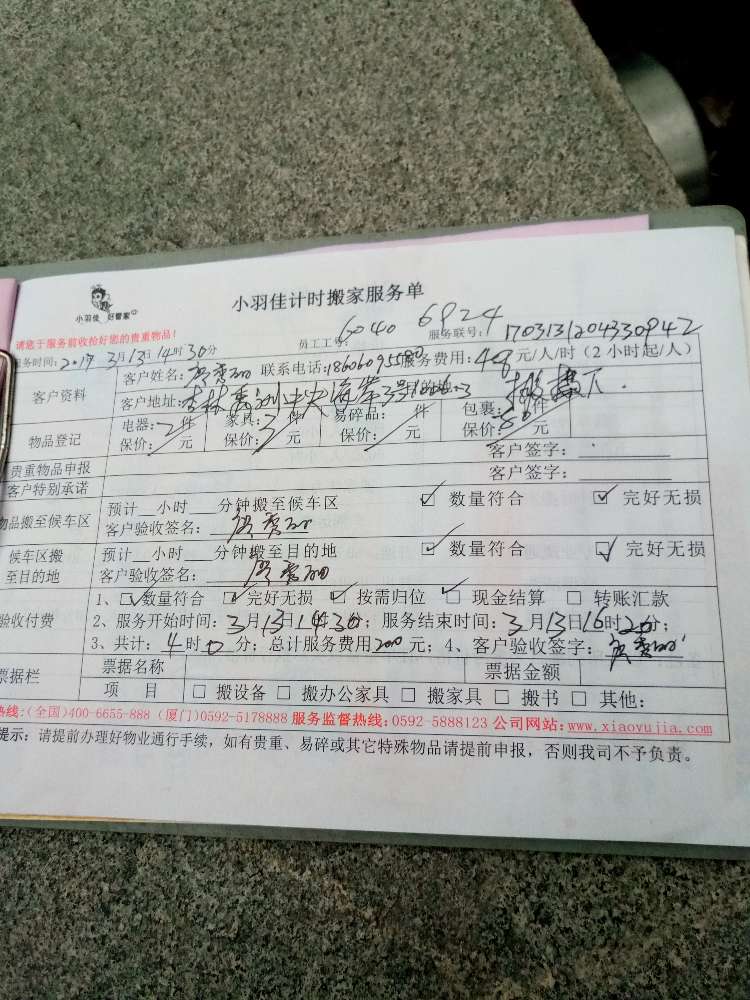 小羽佳 好管家
小羽佳计时搬家服务单
请您于服务前收拾好您的贵重物品!
员工工号: 6040 6924 服务联号: 170313120433094 2
服务时间: 2017 3月13日14时30分
客户资料
客户姓名: 联系电话: 服务费用: 48元/人/时 (2 小时起/人)
客户地址: 杏林禹洲中央海岸3号 搬楼下.
物品登记
电器: 2件 家具: 3件 易碎品: 件 包裹: 50件
保价: 元 保价: 元 保价: 元 保价: 元
贵重物品申报 客户签字:
客户特别承诺 客户签字:
物品搬至候车区
预计 小时 分钟搬至候车区 ☑ 数量符合 ☑ 完好无损
客户验收签名:
候车区搬至目的地
预计 小时 分钟搬至目的地 ☑ 数量符合 ☑ 完好无损
客户验收签名:
验收付费
1、☑数量符合 ☑完好无损 ☑按需归位 ☑现金结算 □ 转账汇款
2、服务开始时间: 3月13日14时30分; 服务结束时间: 3月13日16时20分;
3、共计: 4时0分; 总计服务费用200元; 4、客户验收签字:
票据栏
票据名称 票据金额
项 目 □ 搬设备 □ 搬办公家具 □ 搬家具 □ 搬书 □ 其他:
热线:(全国)400-6655-888 (厦门)0592-5178888 服务监督热线:0592-5888123 公司网站:www.xiaoyujia.com
提示: 请提前办理好物业通行手续, 如有贵重、易碎或其它特殊物品请提前申报, 否则我司不予负责。